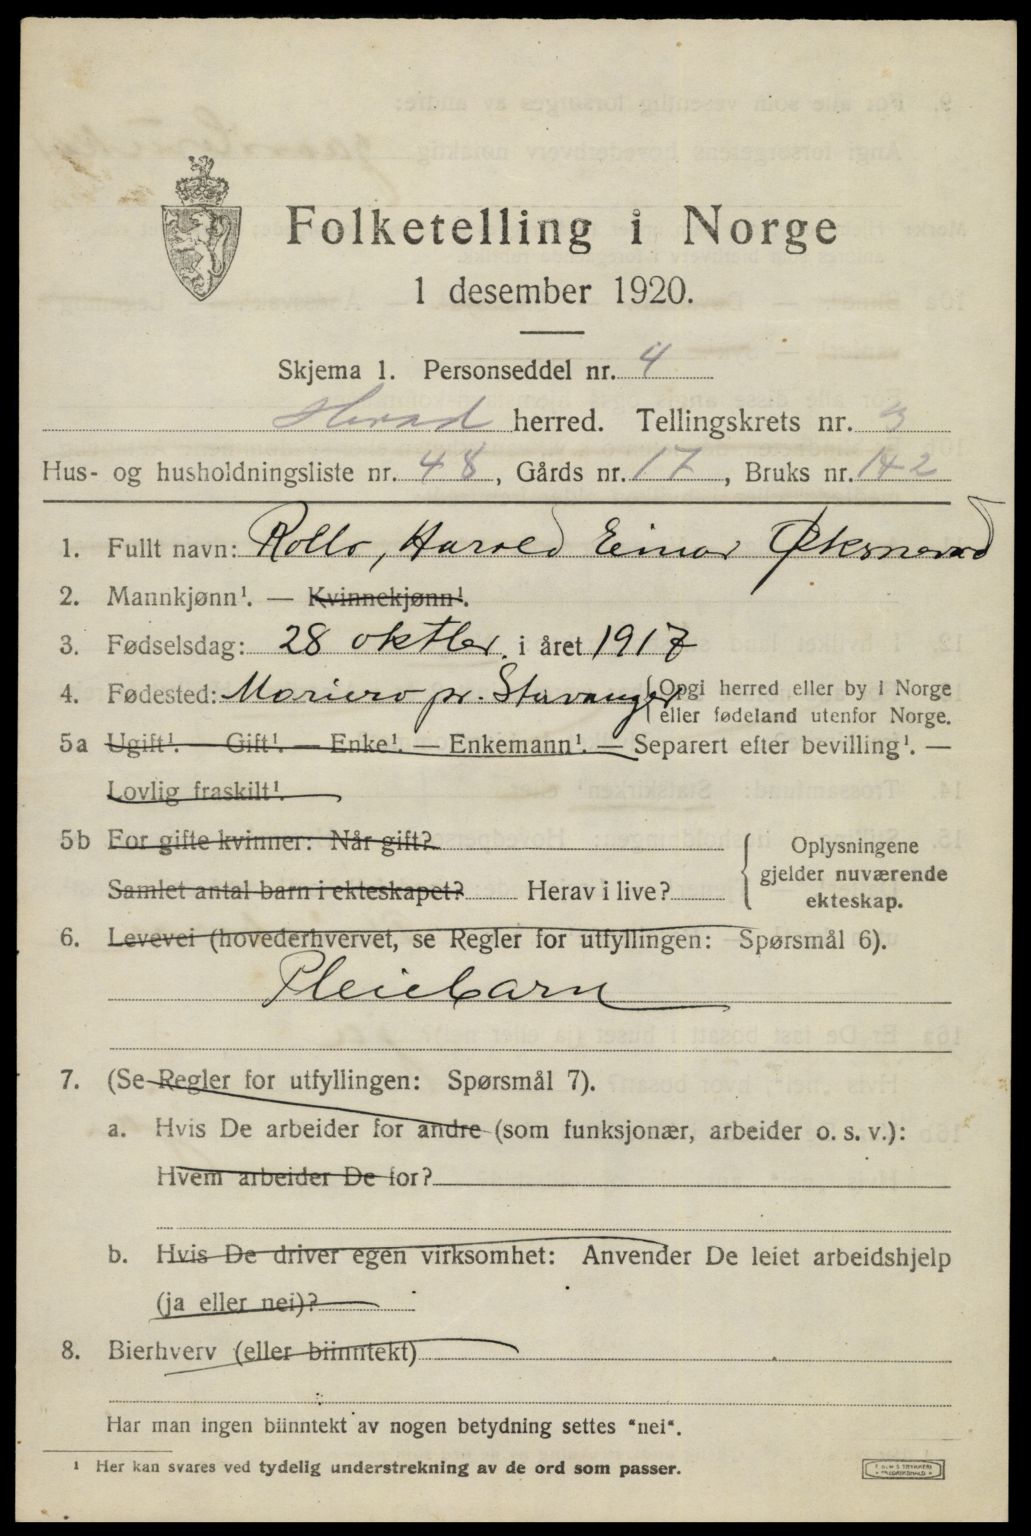 Folketelling i Norge
1 desember 1920.
Skjema 1. Personseddel nr. 4
Herad herred. Tellingskrets nr. 3
Hus- og husholdningsliste nr. 48, Gårds nr. 17, Bruks nr. 142
1. Fullt navn: Rollo, Harold Einar Øksnevad
2. Mannkjønn¹. — Kvinnekjønn¹.
3. Fødselsdag: 28 oktber. i året 1917
4. Fødested: Mariero pr. Stavanger {Opgi herred eller by i Norge
eller fødeland utenfor Norge.
5a Ugift¹. — Gift¹. — Enke¹. — Enkemann¹. — Separert efter bevilling¹. —
Lovlig fraskilt¹.
5b For gifte kvinner: Når gift?
Samlet antal barn i ekteskapet? Herav i live?
{ Oplysningene
gjelder nuværende
ekteskap.
6. Levevei (hovederhvervet, se Regler for utfyllingen: Spørsmål 6).
Pleiebarn
7. (Se Regler for utfyllingen: Spørsmål 7).
a. Hvis De arbeider for andre (som funksjonær, arbeider o. s. v.):
Hvem arbeider De for?
b. Hvis De driver egen virksomhet: Anvender De leiet arbeidshjelp
(ja eller nei)?
8. Bierhverv (eller biinntekt)
Har man ingen biinntekt av nogen betydning settes "nei".
¹ Her kan svares ved tydelig understrekning av de ord som passer.